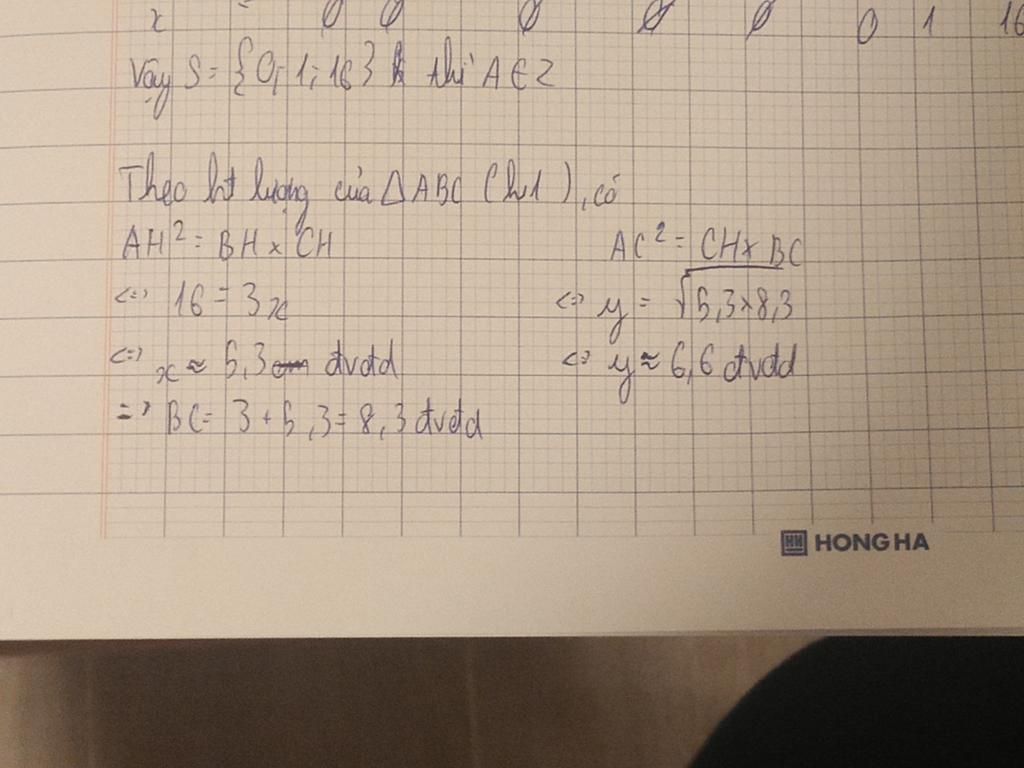 x 0 0 0 0 0 0 1 16
Vậy S = {0; 1; 16} thì A ∈ Z
Theo ht lượng của △ABC (hv1), có
AH² = BH x CH
<=> 16 = 3x
<=> x ≈ 5,3 đvđd
=> BC = 3 + 5,3 = 8,3 đvđd
AC² = CH x BC
<=> y = √5,3x8,3
<=> y ≈ 6,6 đvđd
HH HONG HA